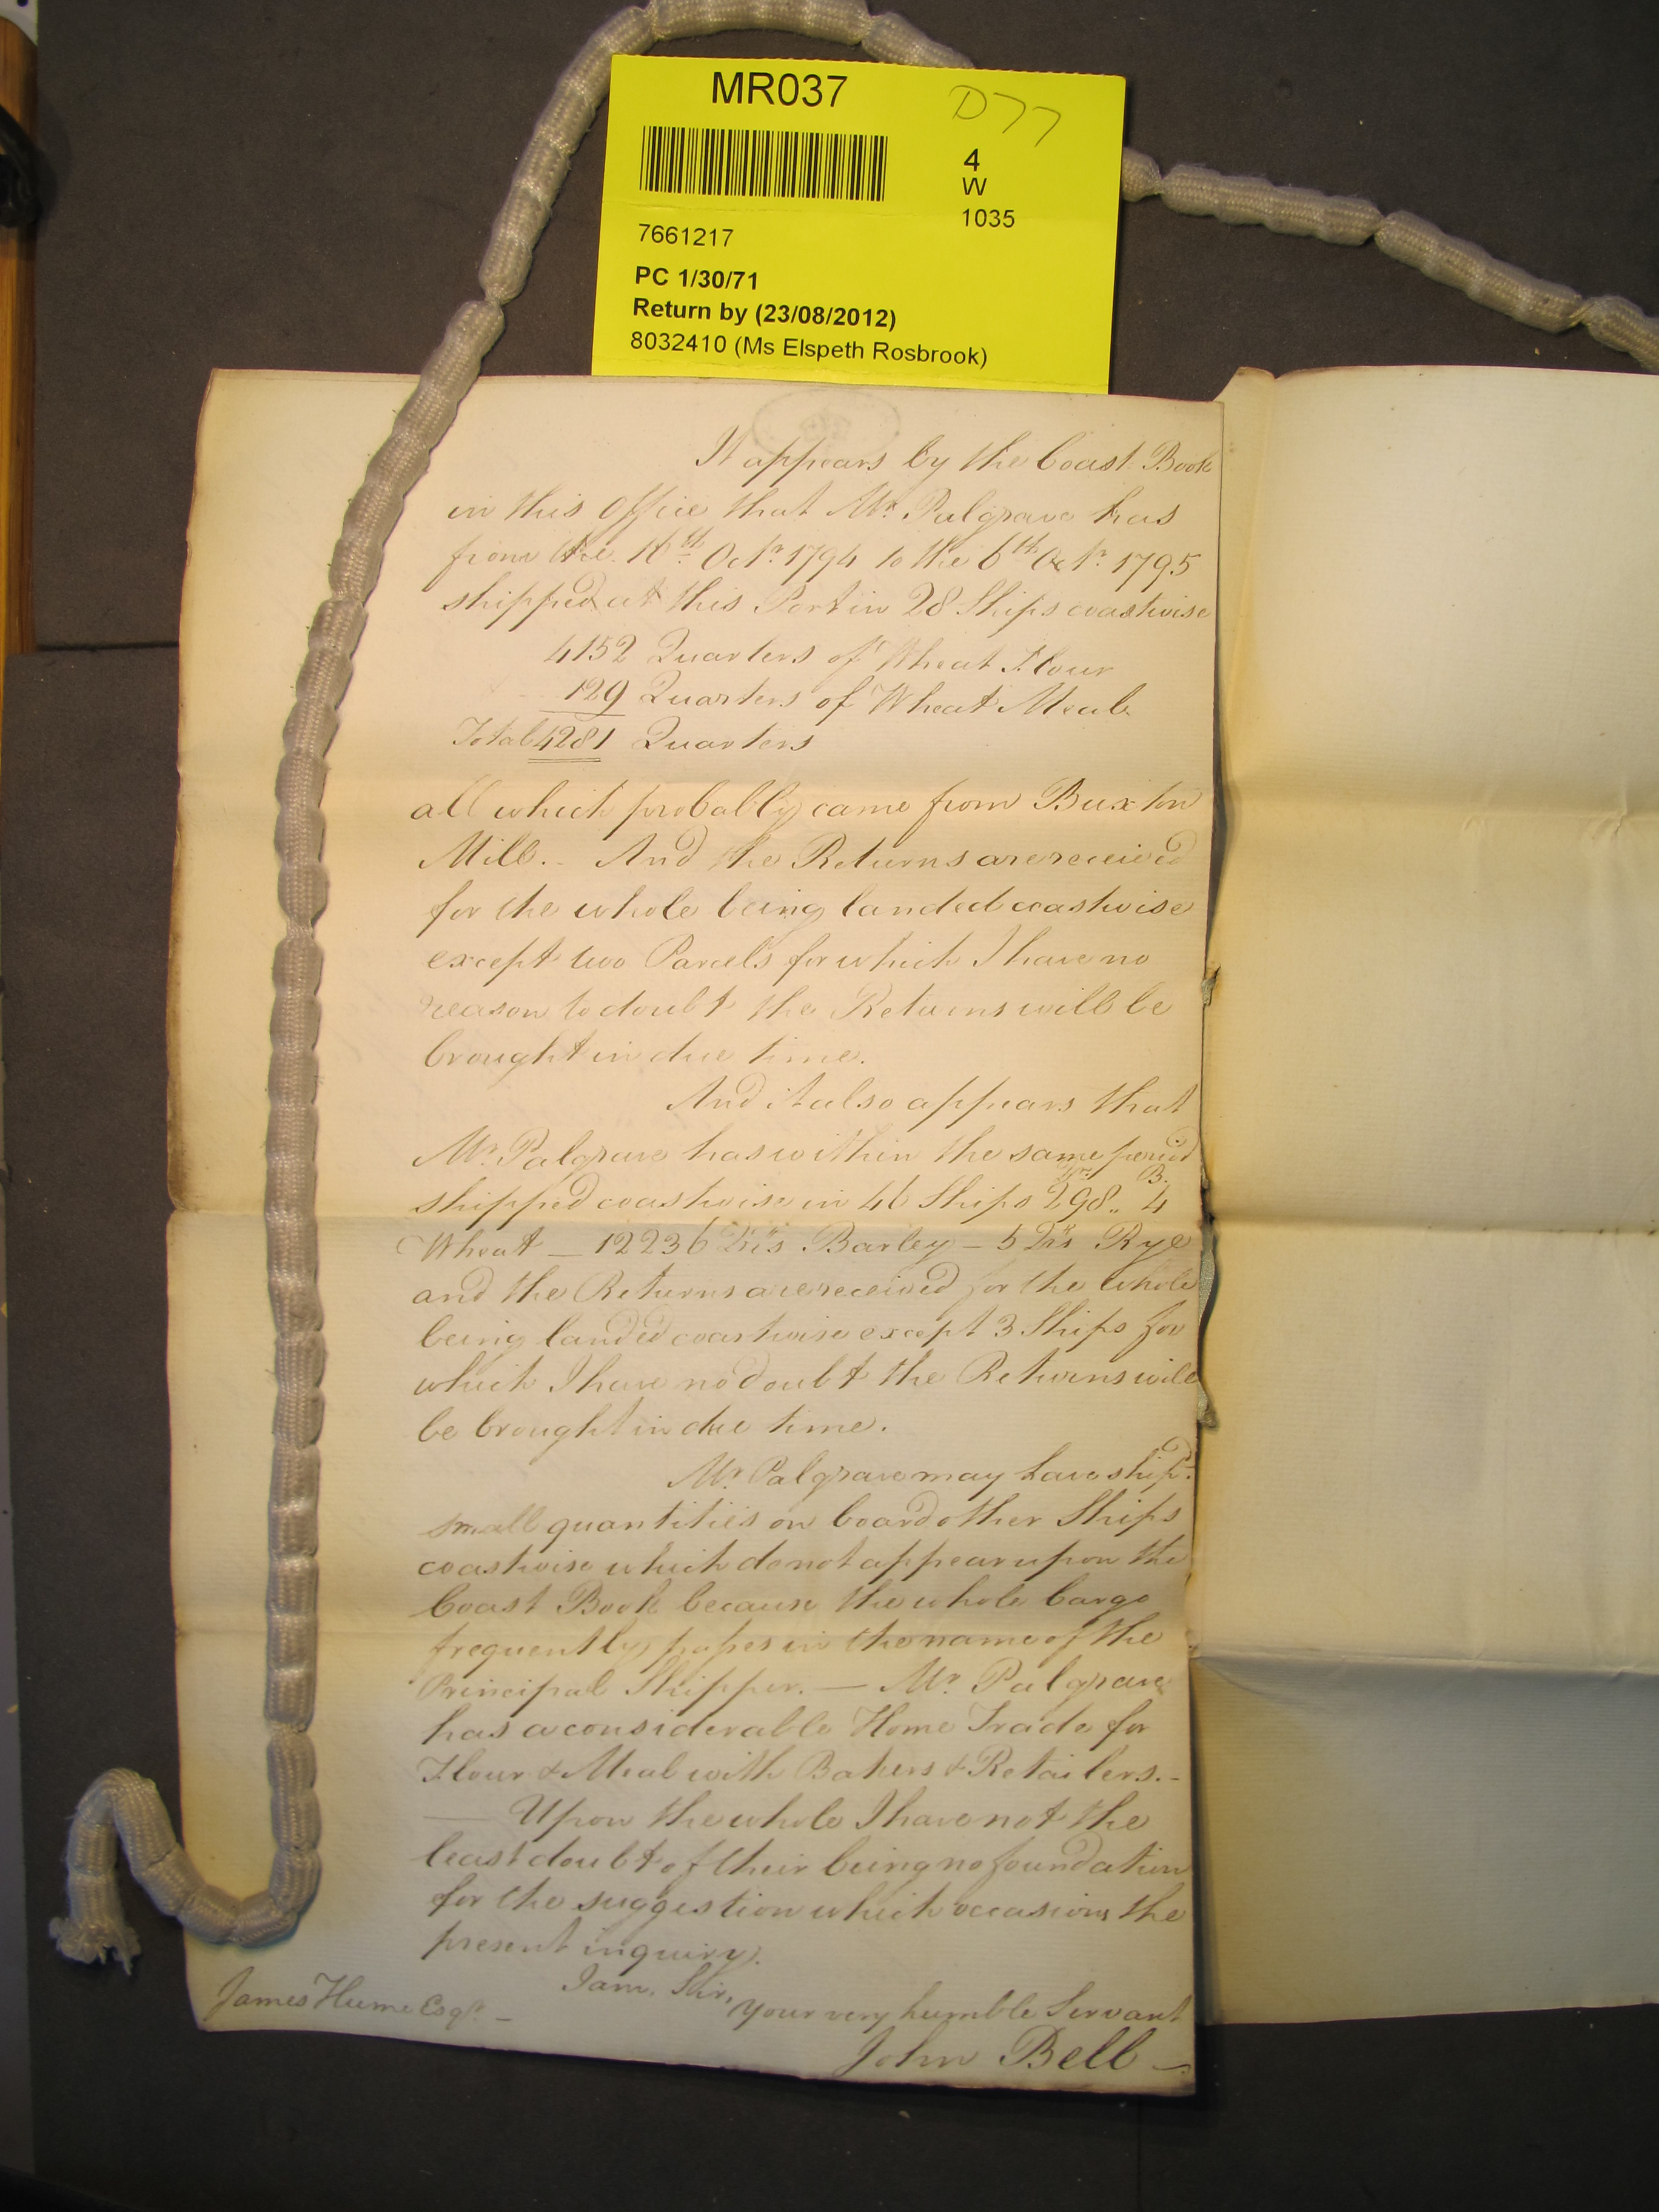 MR037
D77
4
W
1035
7661217
PC 1/30/71
Return by (23/08/2012)
8032410 (Ms Elspeth Rosbrook)
It appears by the Coast Book
in this Office that Mr. Palgrave has
from the 16th Octr. 1794 to the 6th Octr. 1795
shipped at this Port in 28 Ships coastwise
4152 Quarters of Wheat Flour
129 Quarters of Wheat Meal
Total 4281 Quarters
all which probably came from Buxton
Mill. - And the Returns are received
for the whole being landed coastwise
except two Parcels for which I have no
reason to doubt the Returns will be
brought in due time.
And it also appears that
Mr. Palgrave has within the same period
shipped coastwise in 46 Ships 298 Qrs. 4 B.
Wheat — 12236 Qrs Barley — 5 Qrs Rye
and the Returns are received for the whole
being landed coastwise except 3 Ships for
which I have no doubt the Returns will
be brought in due time.
Mr. Palgrave may have ship'd
small quantities on board other Ships
coastwise which do not appear upon the
Coast Book because the whole Cargo
frequently passes in the name of the
Principal Shipper. — Mr. Palgrave
has a considerable Home Trade for
Flour & Meal with Bakers & Retailers. -
— Upon the whole I have not the
least doubt of their being no foundation
for the suggestion which occasions the
present inquiry.
I am, Sir,
your very humble Servant
James Hume Esqr. -
John Bell —